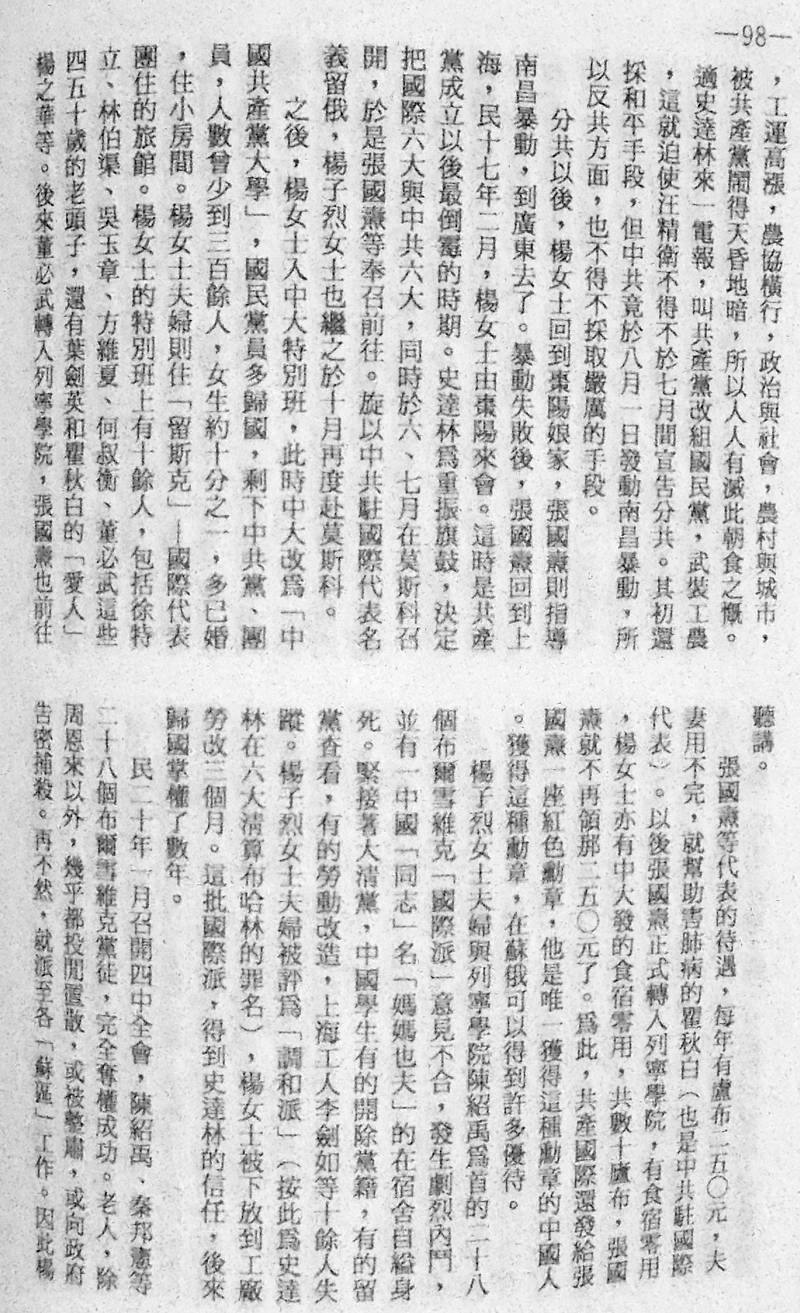 —98—
，工運高漲，農協橫行，政治與社會，農村與城市，
被共產黨鬧得天昏地暗，所以人人有滅此朝食之慨。
適史達林來一電報，叫共產黨改組國民黨，武裝工農
，這就迫使汪精衛不得不於七月間宣告分共。其初還
採和平手段，但中共竟於八月一日發動南昌暴動，所
以反共方面，也不得不採取嚴厲的手段。
分共以後，楊女士回到棗陽娘家，張國燾則指導
南昌暴動，到廣東去了。暴動失敗後，張國燾回到上
海，民十七年二月，楊女士由棗陽來會。這時是共產
黨成立以後最倒霉的時期。史達林爲重振旗鼓，決定
把國際六大與中共六大，同時於六、七月在莫斯科召
開，於是張國燾等奉召前往。旋以中共駐國際代表名
義留俄，楊子烈女士也繼之於十月再度赴莫斯科。
之後，楊女士入中大特別班，此時中大改爲「中
國共產黨大學」，國民黨員多歸國，剩下中共黨、團
員，人數曾少到三百餘人，女生約十分之一，多已婚
，住小房間。楊女士夫婦則住「留斯克」—國際代表
團住的旅館。楊女士的特別班上有十餘人，包括徐特
立、林伯渠、吳玉章、方維夏、何叔衡、董必武這些
四五十歲的老頭子，還有葉劍英和瞿秋白的「愛人」
楊之華等。後來董必武轉入列寧學院，張國燾也前往
聽講。
張國燾等代表的待遇，每年有盧布二五〇元，夫
妻用不完，就幫助害肺病的瞿秋白（也是中共駐國際
代表）。以後張國燾正式轉入列寧學院，有食宿零用
，楊女士亦有中大發的食宿零用，共數十盧布，張國
燾就不再領那二五〇元了。爲此，共產國際還發給張
國燾一座紅色勳章，他是唯一獲得這種勳章的中國人
。獲得這種勳章，在蘇俄可以得到許多優待。
楊子烈女士夫婦與列寧學院陳紹禹爲首的二十八
個布爾雪維克「國際派」意見不合，發生劇烈內鬥，
並有一中國「同志」名「媽媽也夫」的在宿舍自縊身
死。緊接著大清黨，中國學生有的開除黨籍，有的留
黨查看，有的勞動改造，上海工人李劍如等十餘人失
蹤。楊子烈女士夫婦被評爲「調和派」（按此爲史達
林在六大清算布哈林的罪名），楊女士被下放到工廠
勞改三個月。這批國際派，得到史達林的信任，後來
歸國掌權了數年。
民二十年一月召開四中全會，陳紹禹、秦邦憲等
二十八個布爾雪維克黨徒，完全奪權成功。老人，除
周恩來以外，幾乎都投閒置散，或被整肅，或向政府
告密捕殺。再不然，就派至各「蘇區」工作。因此楊